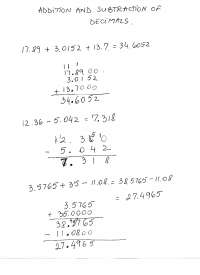 ADDITION AND SUBTRACTION OF
DECIMALS.
17.89 + 3.0152 + 13.7 = 34.6052
11 1
17.8900
3.0152
+ 13.7000
34.6052
12.36 - 5.042 = 7.318
12.3
- 5.042
7.318
3.5765 + 35 - 11.08 = 38.5765 - 11.08
= 27.4965
3.5765
+ 35.0000
38.5765
- 11.0800
27.4965